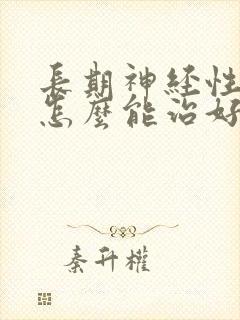 長期神经性
怎麼能治好
秦升權